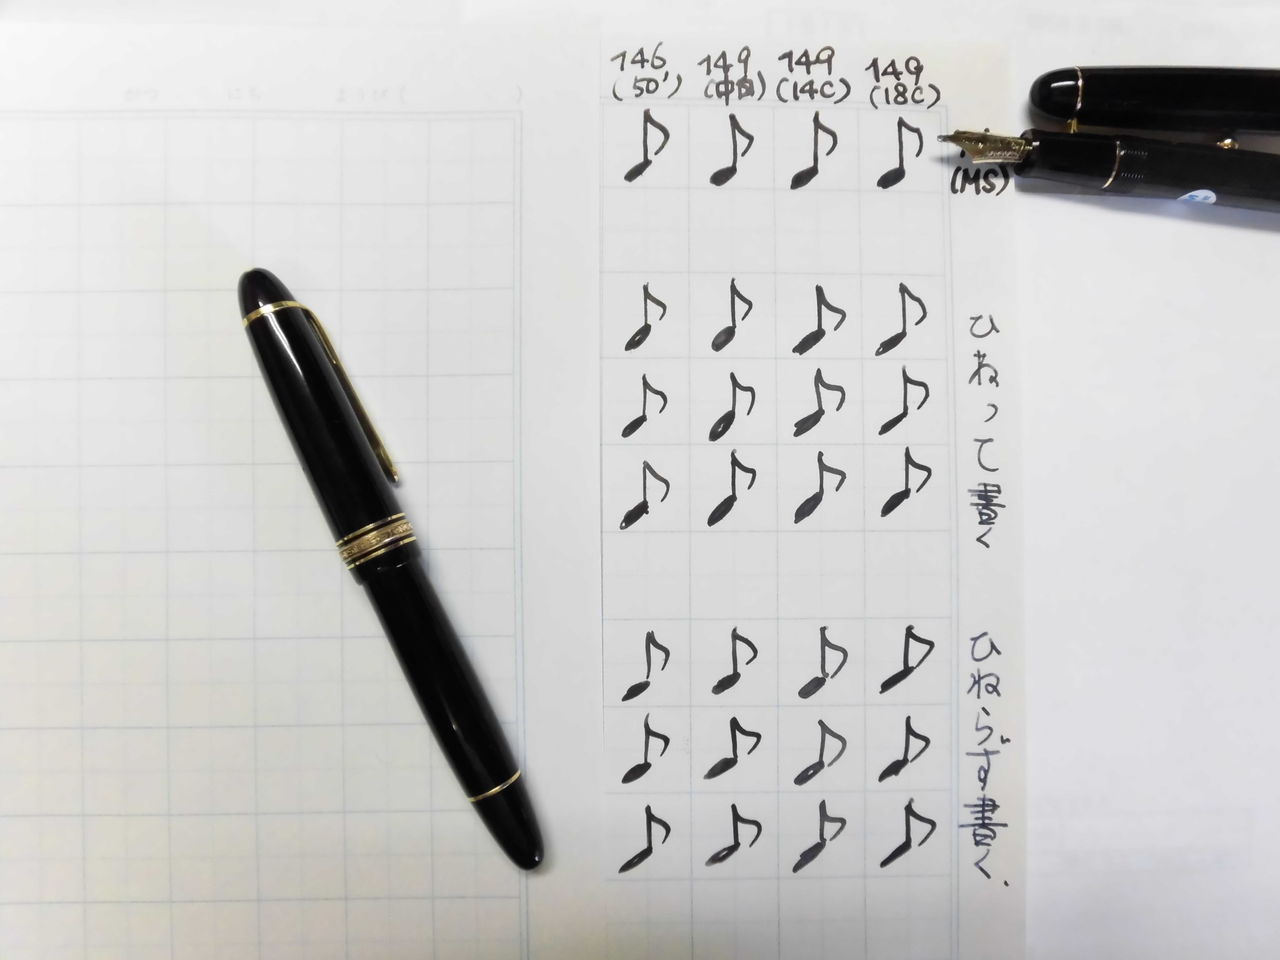 146 149 149 149
(50') (中白) (14C) (18C)
(MS)
ひねって書く
ひねらずに書く.